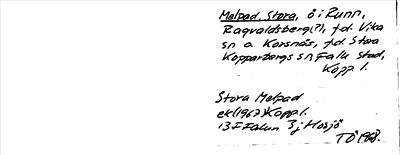 Melpad, Stora, ö i Runn,
Ragvaldsberg(?), f.d. Vika
sn o. Korsnäs, f.d. Stora
Kopparbergs sn, Falu stad,
Kopp. l.
Stora Melpad
ek (1967) Kopp l.
13 F Falun 3 j Hosjö
TÖ 1968.